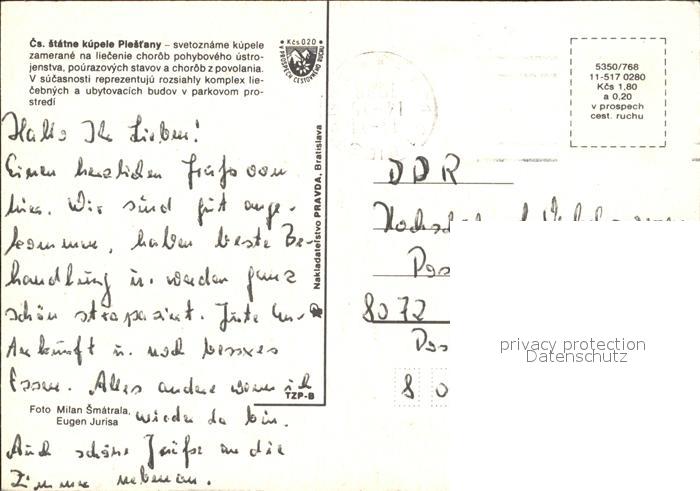 Čs. štátne kúpele Piešťany – svetoznáme kúpele
zamerané na liečenie chorôb pohybového ústro-
jenstva, poúrazových stavov a chorôb z povolania.
V súčasnosti reprezentujú rozsiahly komplex lie-
čebných a ubytovacích budov v parkovom pro-
stredí
Kčs 0,20
PROSPECH CESTOVNÉHO RUCHU
Hallo Ihr Lieben!
Einen herzlichen Gruß von
hier. Wir sind gut ange-
kommen, haben beste Be-
handlung u. werden ganz
schön strapaziert. Gute Un-
terkunft u. noch besseres
Essen. Alles andere wenn ich
wieder da bin.
Auch schöne Grüße an die
Zimmer nebenan.
Foto Milan Šmátrala,
Eugen Jurisa
TZP-B
Nakladateľstvo PRAVDA, Bratislava
5350/768
11-517 0280
Kčs 1,80
a 0,20
v prospech
cest. ruchu
DDR
8072
8 0
privacy protection
Datenschutz